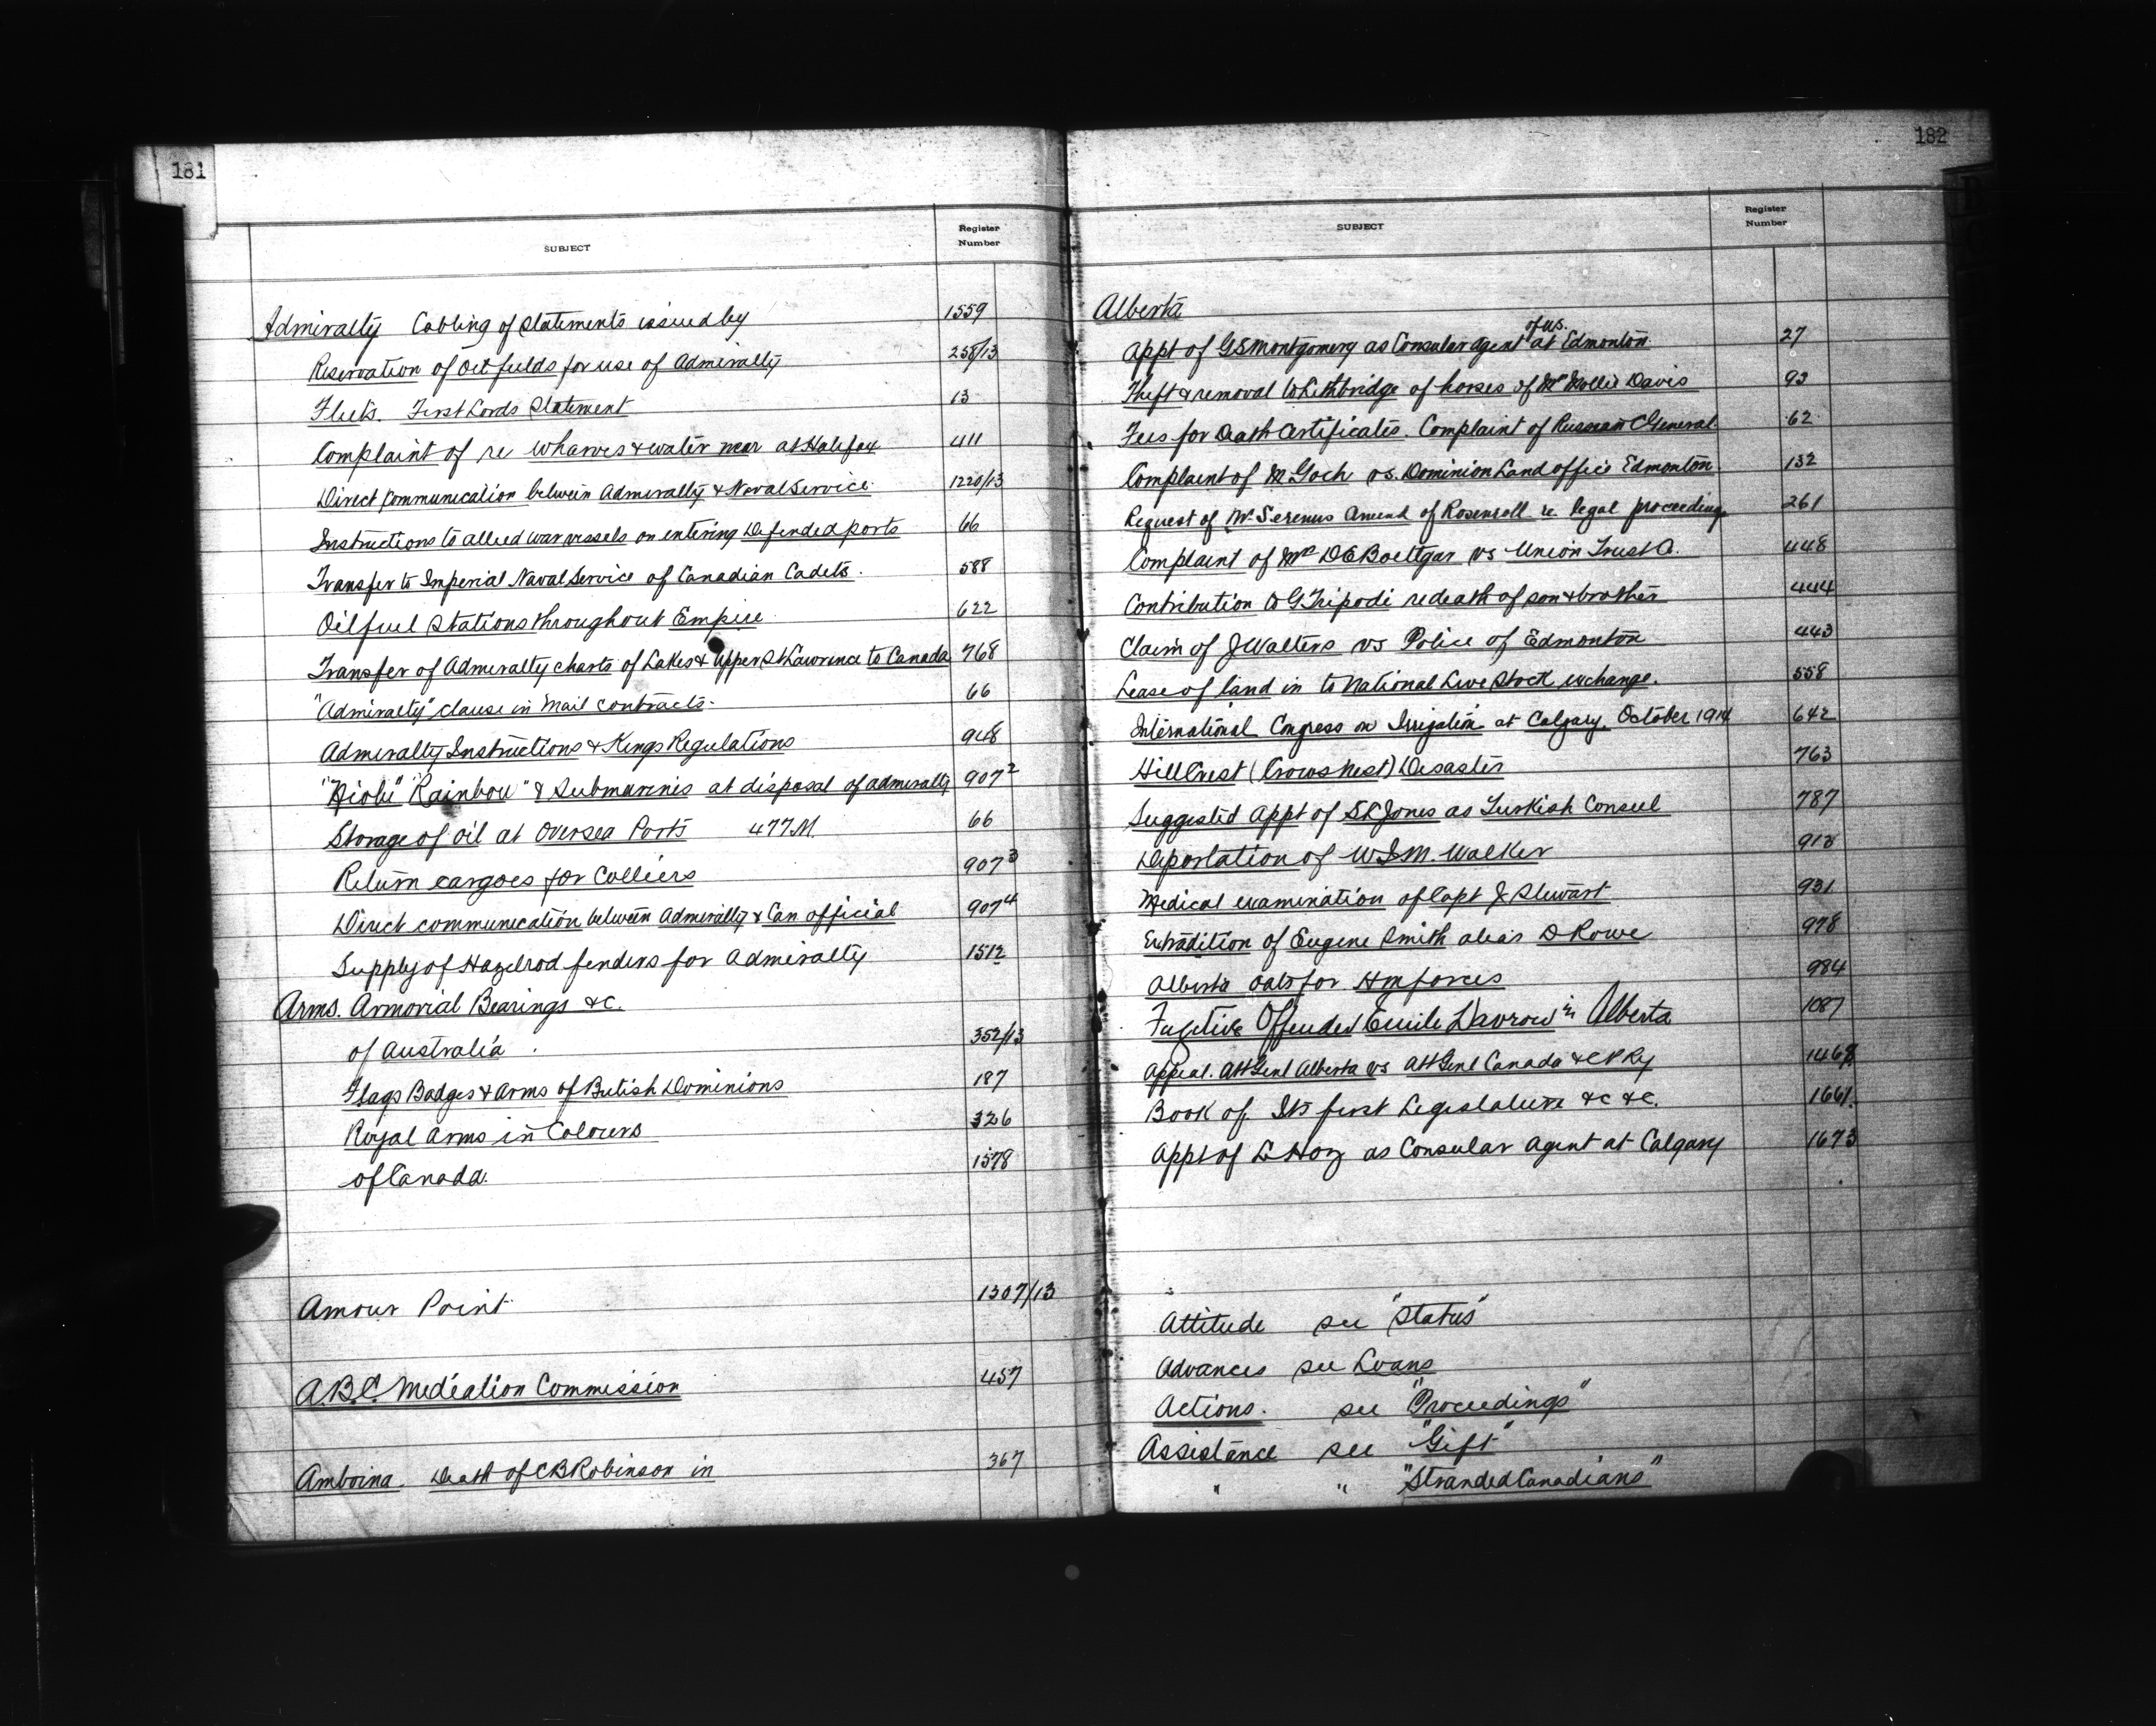 181
SUBJECT Register Number
Admiralty Cabling of Statements issued by 1559
Reservation of Oil fields for use of Admiralty 258/13
Fleets. First Lords Statement 13
Complaint of re Wharves & water near at Halifax 411
Direct Communication between Admiralty & Naval Service 1220/13
Instructions to allied war vessels on entering Defended ports 66
Transfer to Imperial Naval Service of Canadian Cadets. 588
Oil fuel Stations throughout Empire 622
Transfer of Admiralty charts of Lakes & Upper St Lawrence to Canada 768
"Admiralty" clause in Mail contracts. 66
Admiralty Instructions & Kings Regulations 948
"Niobe" "Rainbow" & Submarines at disposal of admiralty 907²
Storage of oil at Oversea Ports 477M. 66
Return cargoes for Colliers 907³
Direct communication between Admiralty & Can official 907⁴
Supply of Hazelrod fenders for Admiralty 1512
Arms. Armorial Bearings &c.
of Australia 352/13
Flags Badges & Arms of British Dominions 187
Royal Arms in Colours 326
of Canada. 1578
Amour Point 1307/13
A.B.C. Mediation Commission 457
Amboina. Death of C B Robinson in 367
182
SUBJECT Register Number
Alberta
Appt of G S Montgomery as Consular Agent of U.S. at Edmonton 27
Theft & removal to Lethbridge of horses of Mrs Mollie Davis 93
Fees for Death Certificates. Complaint of Russian C General 62
Complaint of M Goch vs. Dominion Land office Edmonton 132
Request of Mr Serenus of Rosenroll re legal proceedings 261
Complaint of Mrs D E Boettgar vs Union Trust Co. 448
Contribution to G Tripodi re death of son & brother 444
Claim of J Walters vs Police of Edmonton 443
Lease of land in to National Live Stock exchange. 558
International Congress on Irrigation at Calgary. October 1914 642
Hillcrest (Crows Nest) Disaster 763
Suggested Appt of S L Jones as Turkish Consul 787
Deportation of W S M. Walker 918
Medical examination of Capt J Stewart 931
Extradition of Eugene Smith alias D Rowe 978
Alberta oats for HM forces 984
Fugitive Offender Emile Davrow in Alberta 1087
Appeal. Att Genl Alberta vs Att Genl Canada & C P Ry 1468
Book of its first Legislature &c &c. 1661.
Appt of L Hoz as Consular Agent at Calgary 1673
Attitude see "Status"
Advances see Loans
Actions. see "Proceedings"
Assistance see "Gift"
" " "Stranded Canadians"